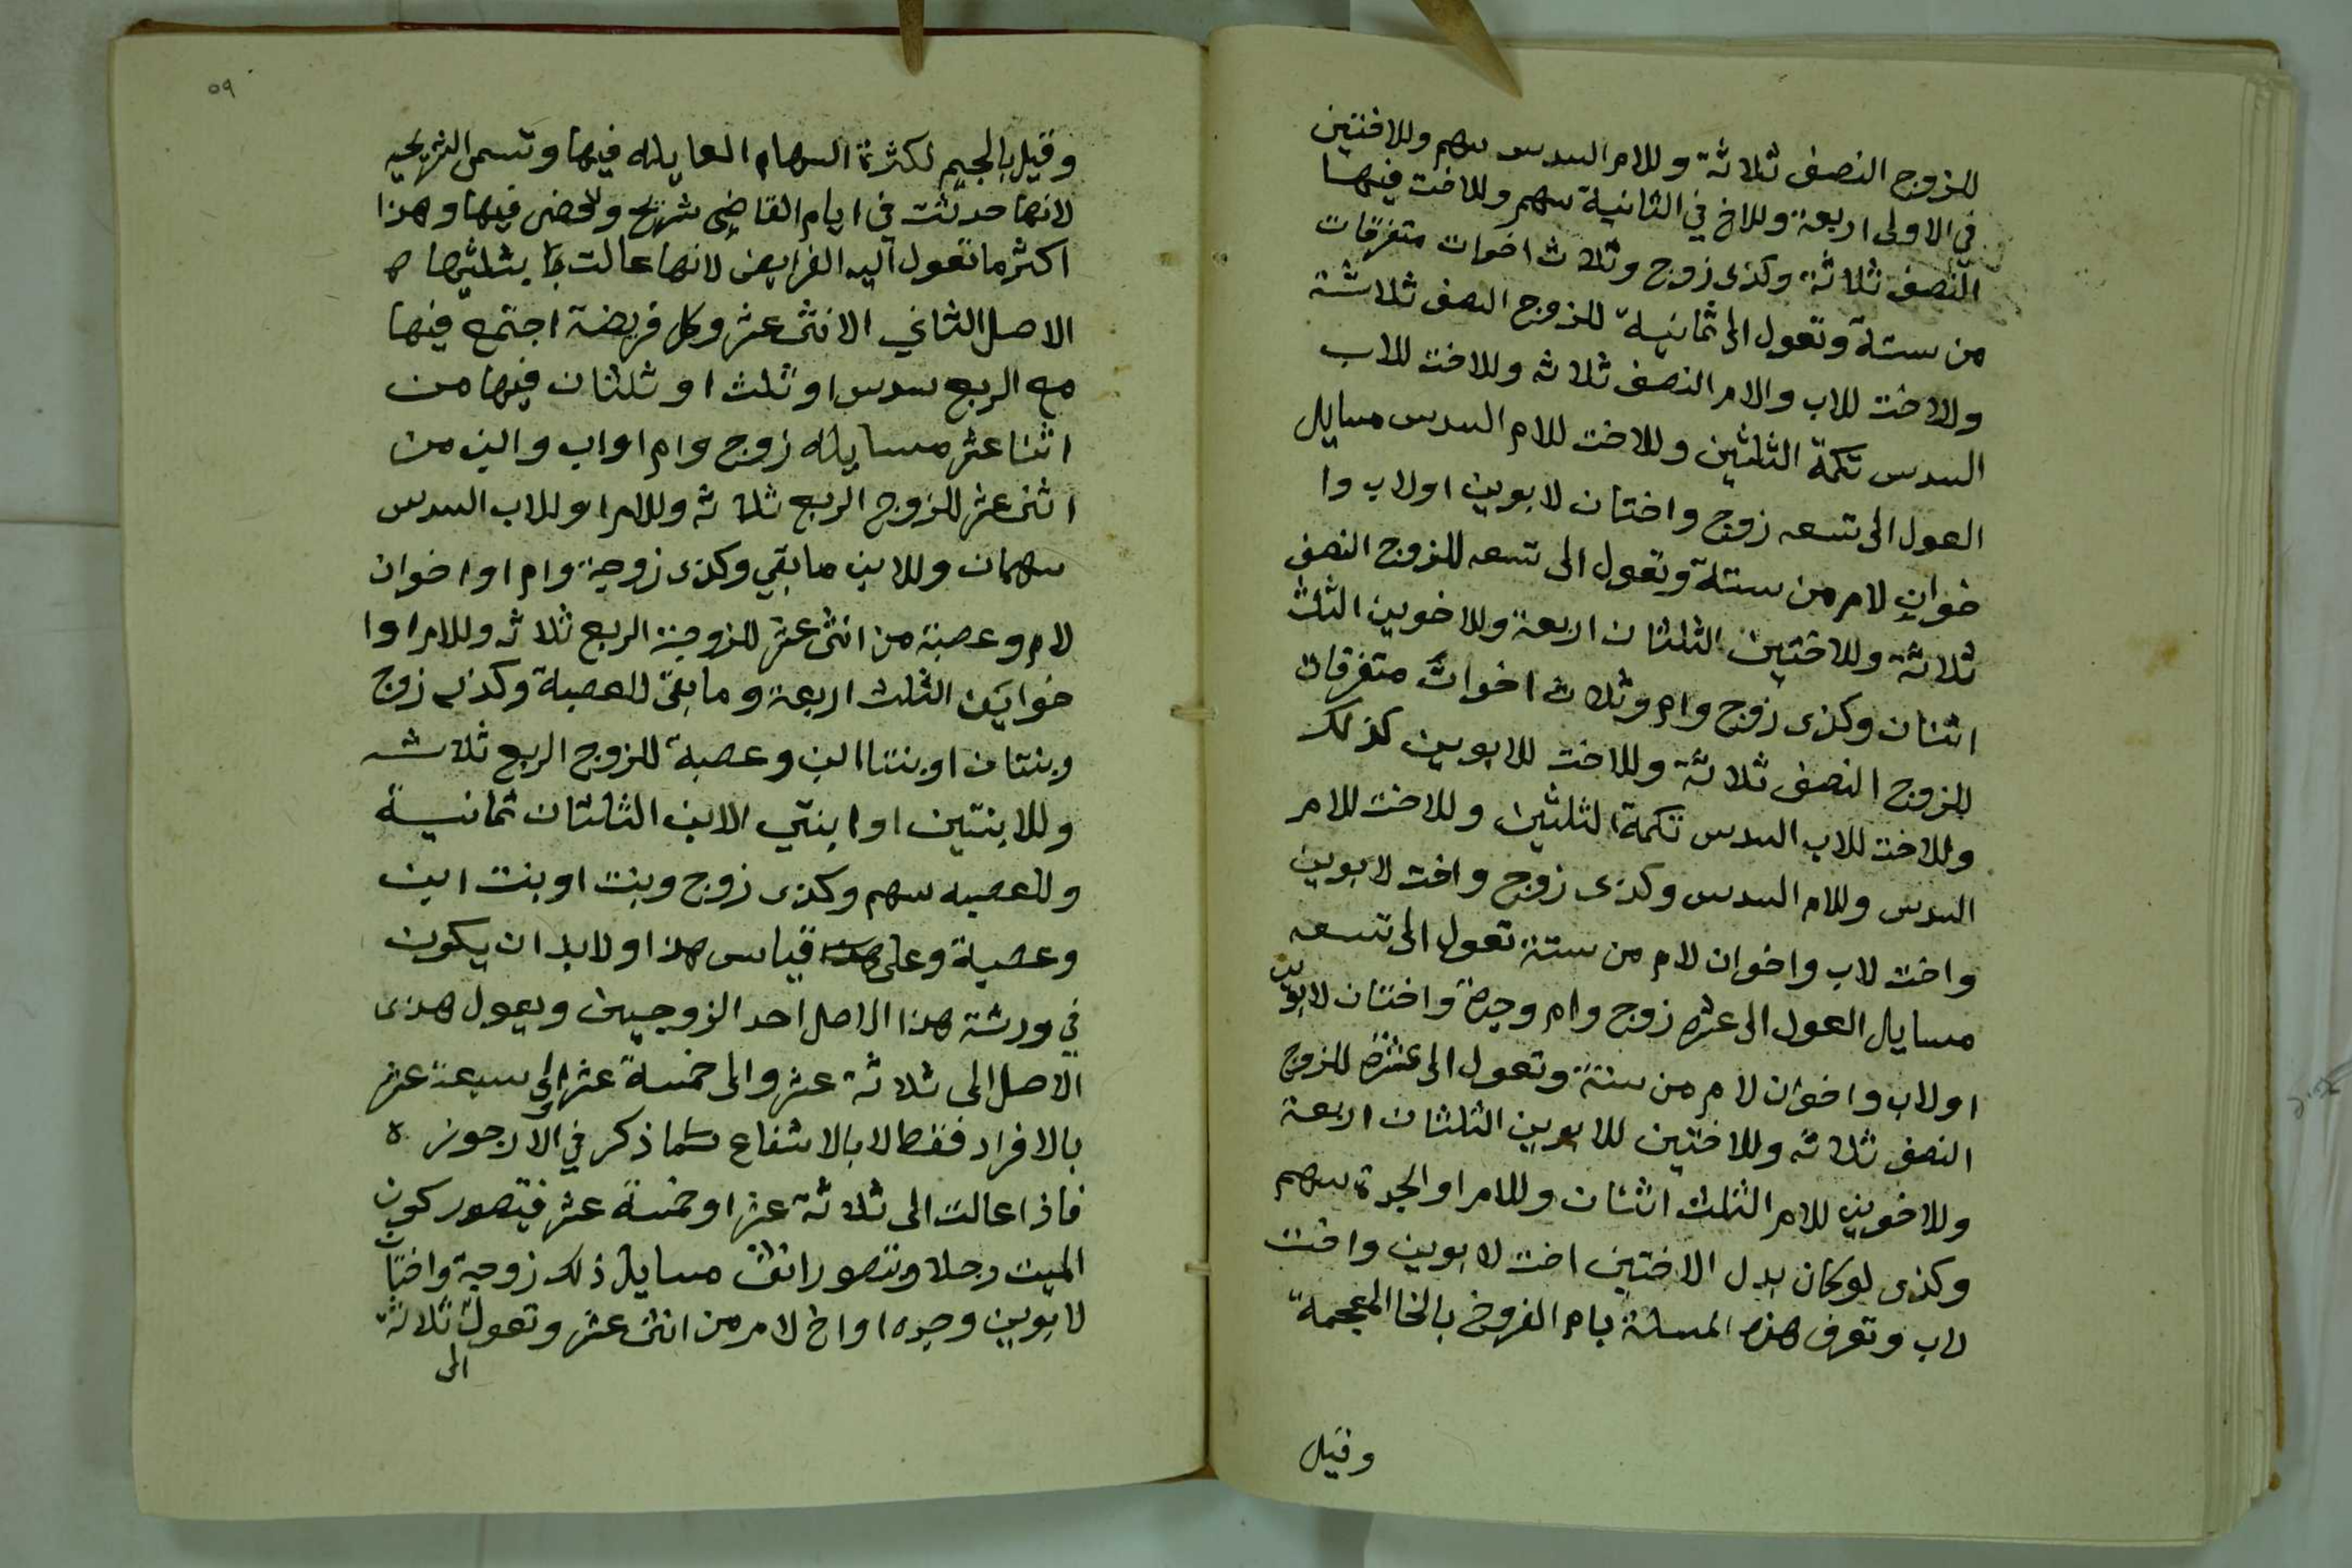 للزوج النصف ثلاثة وللام السدس سهم وللاختين
في الاولى اربعة وللاخ في الثانية سهم وللاخت فيها
النصف ثلاثة وكذى زوج وثلاث اخوات متفرقات
من ستة وتعول الى ثمانية للزوج النصف ثلاثة
وللاخت للاب والام النصف ثلاثه وللاخت للاب
السدس تكمة الثلثين وللاخت للام السدس مسايل
العول الى تسعه زوج واختان لابوين اولاب وا
خوان لام من ستة وتعول الى تسعه للزوج النصف
ثلاثة وللاختين الثلثان اربعة وللاخوين الثلث
اثنان وكذى زوج وام وثلاث اخوات متفرقات
للزوج النصف ثلاثة وللاخت للابوين كذلك
وللاخت للاب السدس تكمة الثلثين وللاخت للام
السدس وللام السدس وكذى زوج واخت لابوين
واخت لاب واخوان لام من ستة تعول الى تسعه
مسايل العول الى عشره زوج وام وجدة واختان لابوين
اولاب واخوان لام من ستة وتعول الى عشرة للزوج
النصف ثلاثه وللاختين للابوين الثلثان اربعة
وللاخوين للام الثلث اثنان وللام او الجدة سهم
وكذى لوكان بدل الاختين اخت لابوين واخت
لاب وتعرف هذه المسئلة بام الفروخ بالخا المعجمة
وقيل
٥٩
وقيل بالجيم لكثرة السهام العايله فيها وتسمى الشريحيه
لانها حدثت في ايام القاضي شريح وقضى فيها وهذا
اكثر ما تعول اليه الفرايض لانها عالت بثلثيها ه
الاصل الثاني الاثنى عشر وكل فريضة اجتمع فيها
مع الربع سدس او ثلث او ثلثان فيها من
اثنا عشر مسايله زوج وام او اب وابن من
اثنى عشر للزوج الربع ثلاثه وللام او للاب السدس
سهمان وللابن ما بقي وكذى زوجة وام او اخوان
لام وعصبة من اثنى عشر للزوجة الربع ثلاثه وللام اوا
خواين الثلث اربعة وما بقى للعصبة وكذى زوج
وبنتان او بنتا ابن وعصبة للزوج الربع ثلاثه
وللابنتين او ابنتي الابن الثلثان ثمانية
وللعصبه سهم وكذى زوج وبنت او بنت ابن
وعصبة وعلى قياس هذا ولا بد ان يكون
في ورثة هذا الاصل احد الزوجين ويعول هذى
الاصل الى ثلاثة عشر والى خمسة عشر والى سبعة عشر
بالافراد فقط لا بالاشفاع كما ذكر في الارجوز ه
فاذا عالت الى ثلاثة عشر او خمسة عشر فيتصور كون
الميت رجلا ويتصور انثى مسايل ذلك زوجة واختان
لابوين وجده او اخ لام من اثنى عشر وتعول ثلاثة
الى